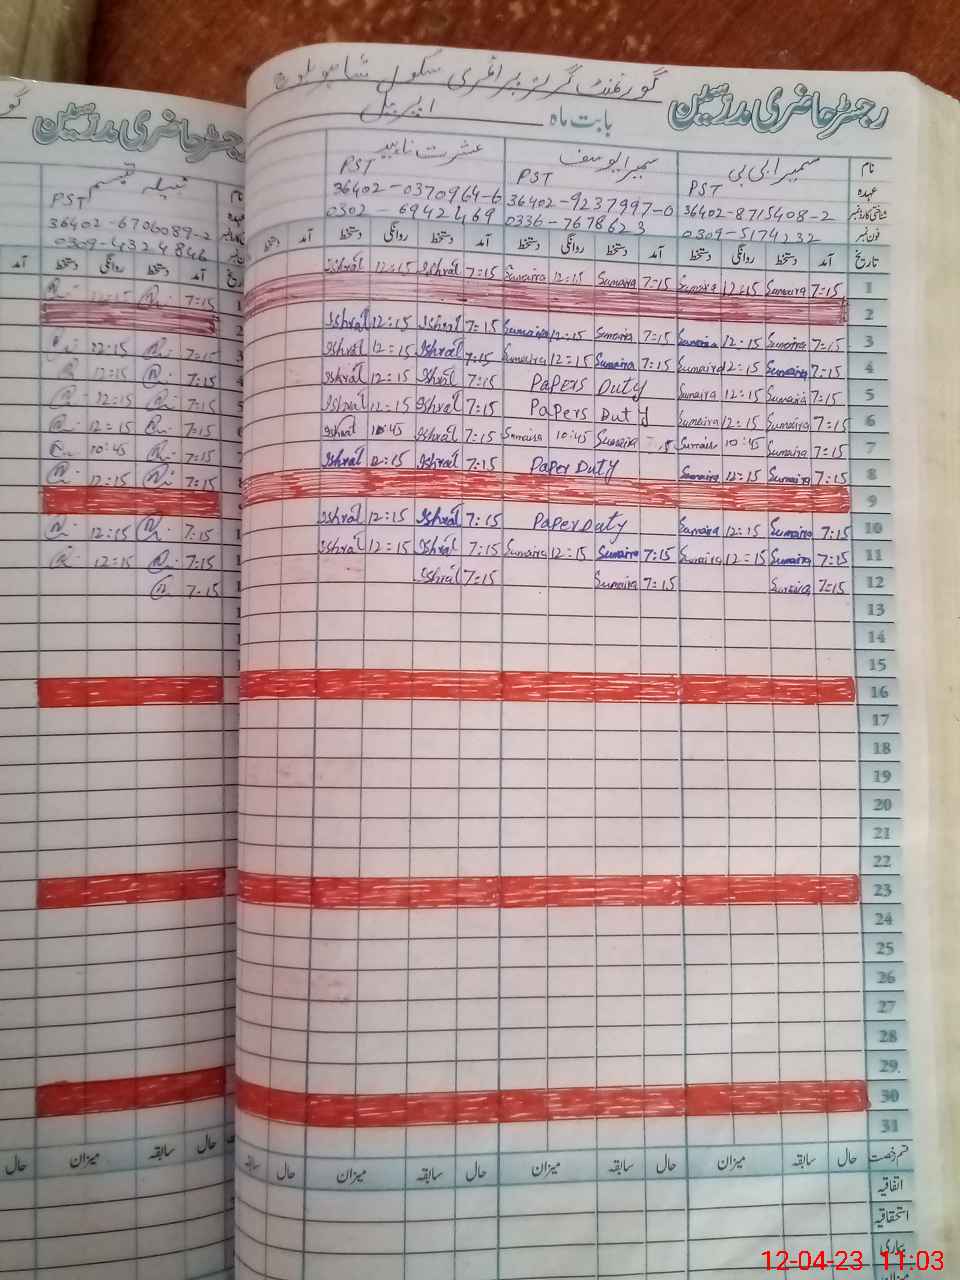 گورنمنٹ گرلز پرائمری سکول شاہو بلوچ
رجسٹر حاضری مدرسین
بابت ماہ اپریل
نام سمیرا بی بی سمیرا یوسف عشرت ناہید
عہدہ PST PST PST
شناختی کارڈ نمبر 36402-8715408-2 36402-9237997-0 36402-0370964-6
فون نمبر 0309-5174232 0336-7678623 0302-6942469
تاریخ آمد دستخط روانگی دستخط آمد دستخط روانگی دستخط آمد دستخط روانگی دستخط آمد دستخط
1 7:15 Sumaira 12:15 Sumaira 7:15 Sumaira 12:15 Sumaira 7:15 Ishrat 12:15 Ishrat
2
3 7:15 Sumaira 12:15 Sumaira 7:15 Sumaira 12:15 Sumaira 7:15 Ishrat 12:15 Ishrat
4 7:15 Sumaira 12:15 Sumaira 7:15 Sumaira 12:15 Sumaira 7:15 Ishrat 12:15 Ishrat
5 7:15 Sumaira 12:15 Sumaira Papers Duty 7:15 Ishrat 12:15 Ishrat
6 7:15 Sumaira 12:15 Sumaira Papers Duty 7:15 Ishrat 12:15 Ishrat
7 7:15 Sumaira 10:45 Sumaira Sumaira 10:45 Sumaira 7:15 Ishrat 10:45 Ishrat
8 7:15 Sumaira 12:15 Sumaira Paper Duty 7:15 Ishrat 12:15 Ishrat
9
10 7:15 Sumaira 12:15 Sumaira Paper Duty 7:15 Ishrat 12:15 Ishrat
11 7:15 Sumaira 12:15 Sumaira 7:15 Sumaira 12:15 Sumaira 7:15 Ishrat 12:15 Ishrat
12 7:15 Sumaira 7:15 Sumaira 7:15 Ishrat
13
14
15
16
17
18
19
20
21
22
23
24
25
26
27
28
29
30
31
قسم رخصت حال سابقہ میزان حال سابقہ میزان حال سابقہ میزان حال سابقہ
اتفاقیہ
استحقاقیہ
بیماری
میزان
رجسٹر حاضری مدرسین
نام نبیلہ تبسم
عہدہ PST
36402-6706089-2
0309-4324846
آمد دستخط روانگی دستخط آمد
7:15 12:15
7:15 12:15
7:15 12:15
7:15 12:15
7:15 12:15
7:15 10:45
7:15 12:15
7:15 12:15
7:15 12:15
7:15
حال سابقہ میزان حال
12-04-23 11:03